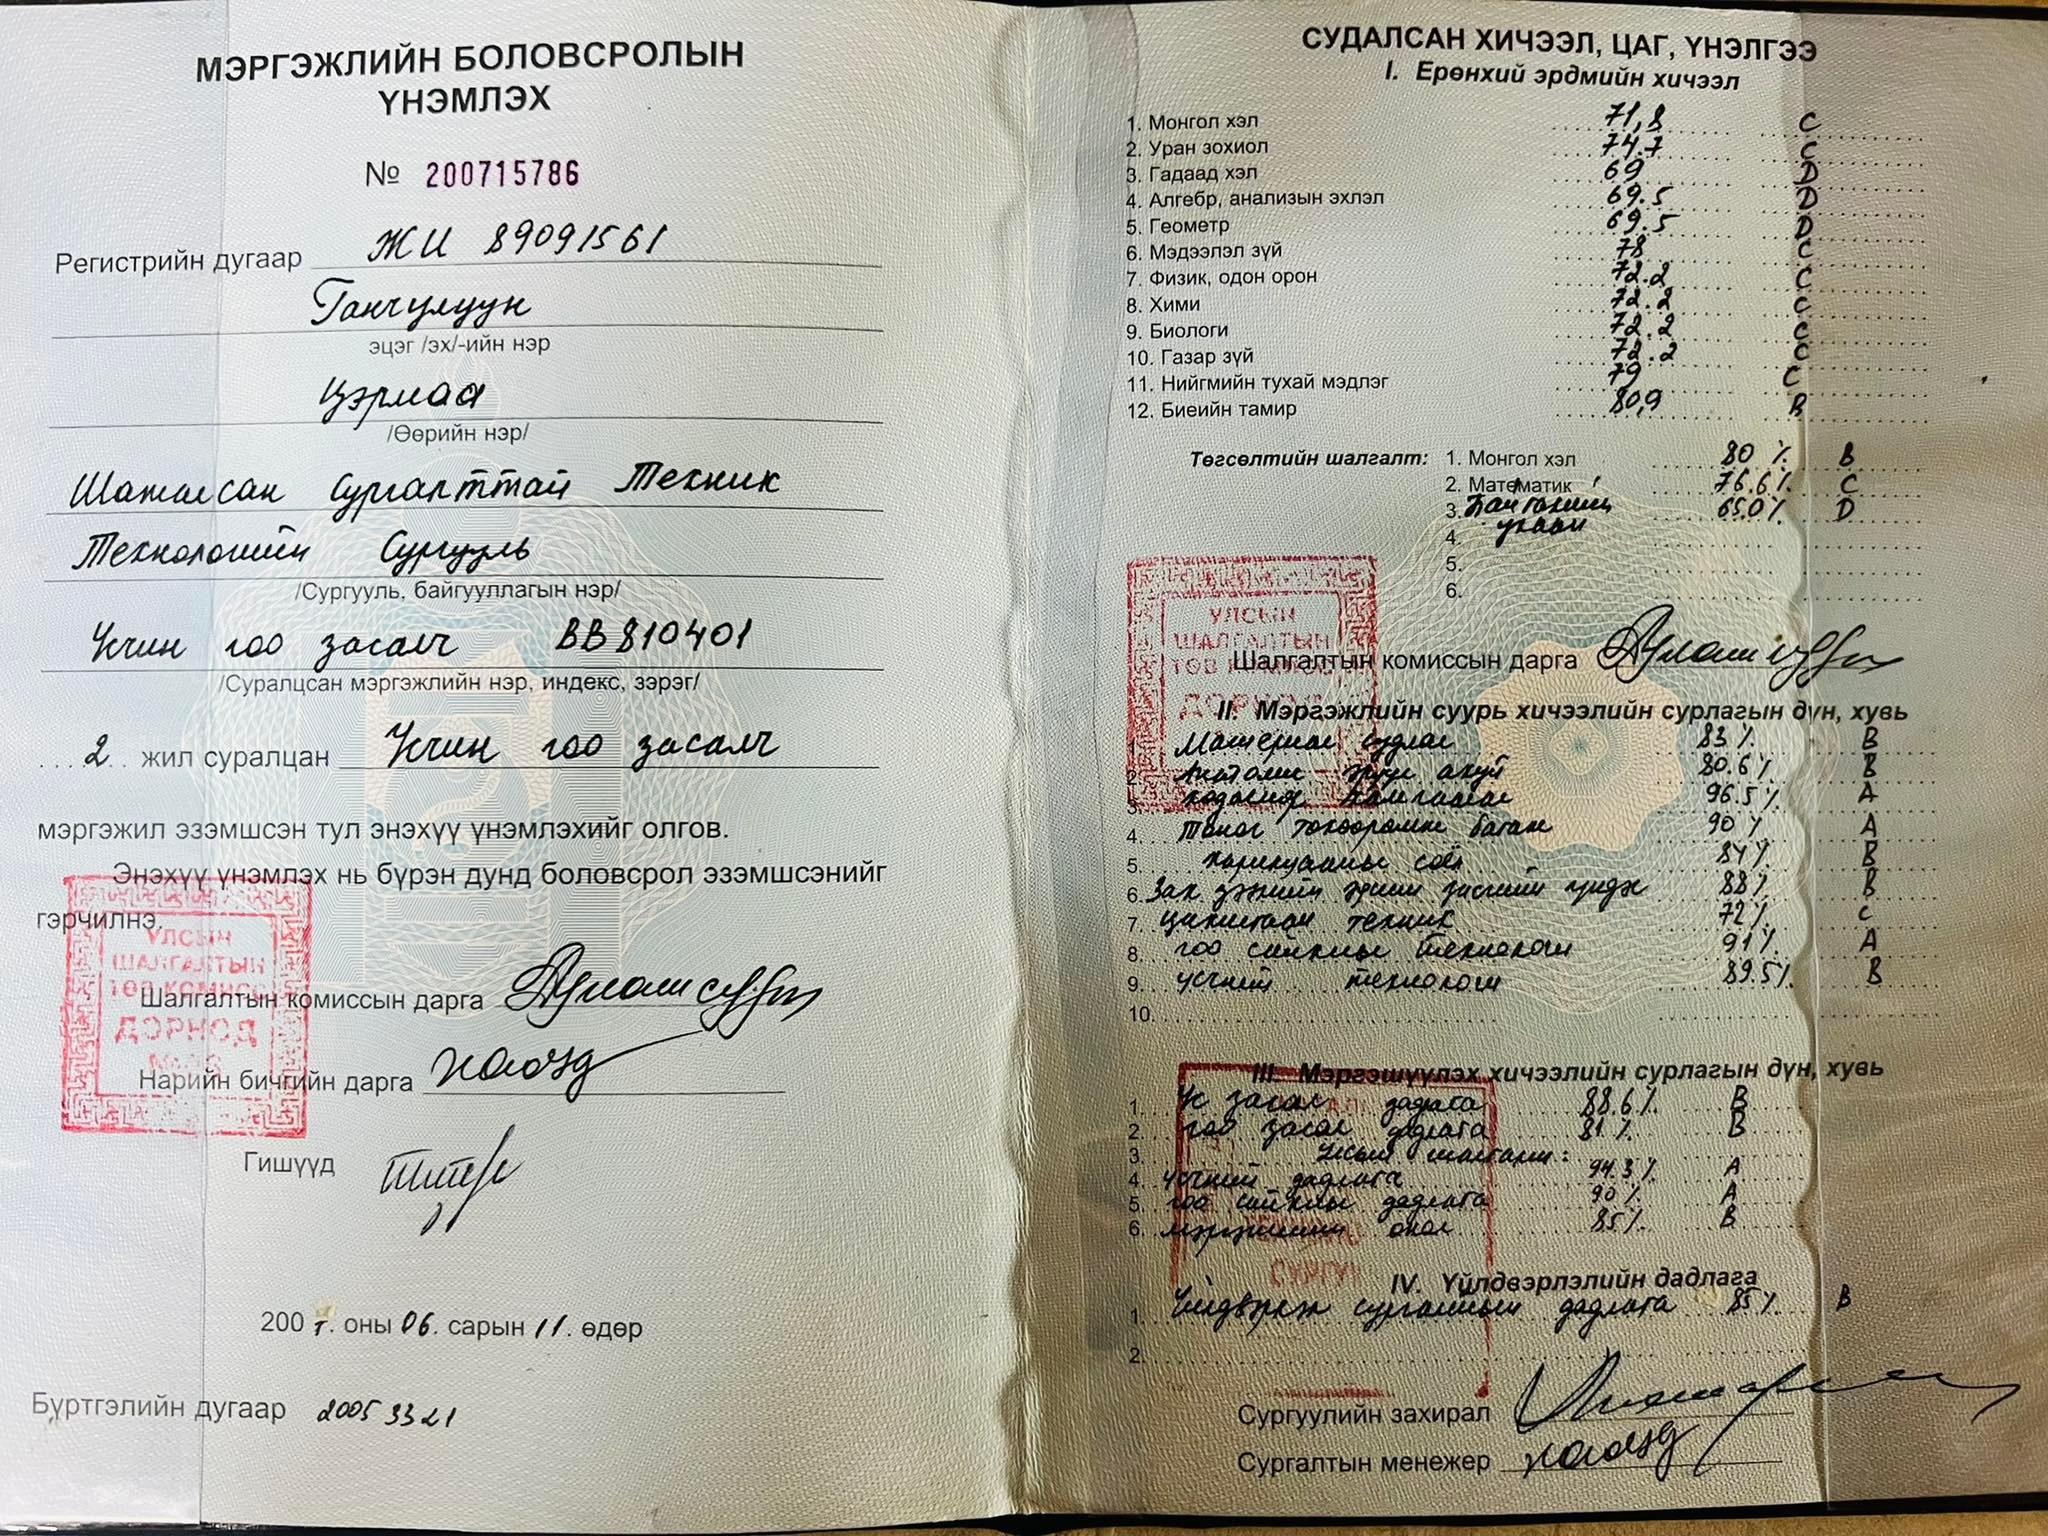 МЭРГЭЖЛИЙН БОЛОВСРОЛЫН
ҮНЭМЛЭХ
№ 200715786
Регистрийн дугаар ЖИ 89091561
Ганчулуун
эцэг /эх/-ийн нэр
Цэрмаа
/Өөрийн нэр/
Шатлсан сургалттай Техник
Технологийн Сургууль
/Сургууль, байгууллагын нэр/
Үсчин гоо засалч ВВ810401
/Суралцсан мэргэжлийн нэр, индекс, зэрэг/
2 жил суралцан Үсчин гоо засалч
мэргэжил эзэмшсэн тул энэхүү үнэмлэхийг олгов.
Энэхүү үнэмлэх нь бүрэн дунд боловсрол эзэмшсэнийг
гэрчилнэ.
УЛСЫН
ШАЛГАЛТЫН
ТӨВ КОМИСС
ДОРНОД
Шалгалтын комиссын дарга
Нарийн бичгийн дарга
Гишүүд
200 7. оны 06. сарын 11. өдөр
Бүртгэлийн дугаар 2005 3321
СУДАЛСАН ХИЧЭЭЛ, ЦАГ, ҮНЭЛГЭЭ
I. Ерөнхий эрдмийн хичээл
1. Монгол хэл 71,8 C
2. Уран зохиол 74.7 C
3. Гадаад хэл 69 D
4. Алгебр, анализын эхлэл 69.5 D
5. Геометр 69.5 D
6. Мэдээлэл зүй 78 C
7. Физик, одон орон 72.2 C
8. Хими 72.2 C
9. Биологи 72.2 C
10. Газар зүй 72.2 C
11. Нийгмийн тухай мэдлэг 79 C
12. Биеийн тамир 80,9 B
Төгсөлтийн шалгалт: 1. Монгол хэл 80 % B
2. Математик 76.6% C
3. Байгалийн 65.0% D
4. ухаан
5.
6.
УЛСЫН
ШАЛГАЛТЫН
ТӨВ КОМИСС
ДОРНОД
Шалгалтын комиссын дарга
II. Мэргэжлийн суурь хичээлийн сурлагын дүн, хувь
1. Материал судлал 83% B
2. Анатоми эрүүл ахуй 80.6% B
3. хөдөлмөр хамгаалал 96.5% A
4. Тоног төхөөрөмж багаж 90% A
5. харилцааны соёл 84% B
6. Зах зээлийн эдийн засгийн үндэс 88% B
7. цахилгаан техник 72% C
8. гоо сайхны технологи 91% A
9. үсчний технологи 89.5% B
10.
III. Мэргэшүүлэх хичээлийн сурлагын дүн, хувь
1. Үс засал дадлага 88.6% B
2. гоо засал дадлага 81% B
3. Улсын шалгалт:
4. үсчний дадлага 94.3% A
5. гоо сайхны дадлага 90% A
6. мэргэжлийн онол 85% B
IV. Үйлдвэрлэлийн дадлага
1. Үйлдвэрлэл сургалтын дадлага 85% B
2.
Сургуулийн захирал
Сургалтын менежер